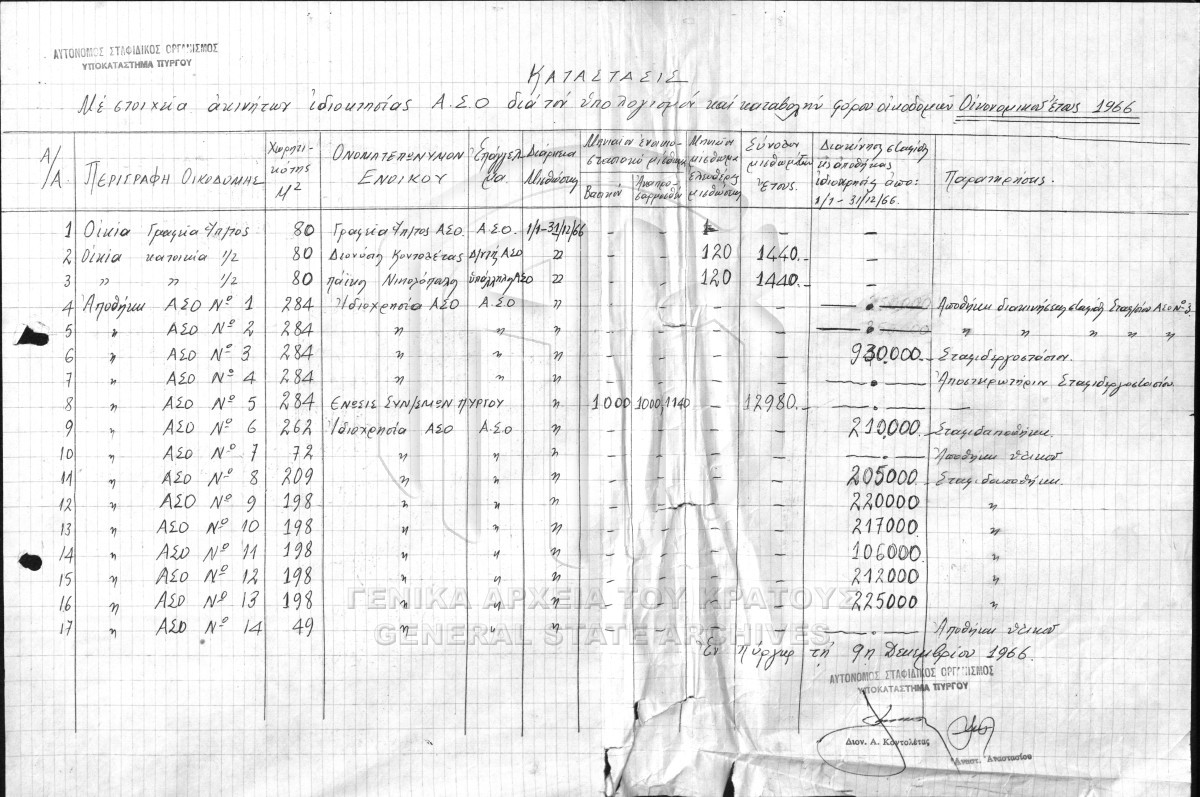 ΑΥΤΟΝΟΜΟΣ ΣΤΑΦΙΔΙΚΟΣ ΟΡΓΑΝΙΣΜΟΣ
ΥΠΟΚΑΤΑΣΤΗΜΑ ΠΥΡΓΟΥ
ΚΑΤΑΣΤΑΣΙΣ
Μέ στοιχεία ἀκινήτων ἰδιοκτησίας Α.Σ.Ο διά τόν ὑπολογισμόν καί καταβολήν φόρου οἰκοδομῶν Οἰκονομικοῦ ἔτους 1966
Α/Α ΠΕΡΙΓΡΑΦΗ ΟΙΚΟΔΟΜΗΣ Χωρητικότης Μ2 ΟΝΟΜΑΤΕΠΩΝΥΜΟΝ ΕΝΟΙΚΟΥ Ἐπάγγελμα. Διάρκεια Μισθώσεως Μηνιαῖον ἐνοικιοστασιακό μίσθωμα Βασικόν Ἀναπροσαρμοσθέν Μηνιαῖον μίσθωμα ἐλευθέρας μισθώσεως Σύνολον μισθωμάτων Ἔτους. Διακίνησις σταφίδ. ἀποθήκας ἰδιοχρησίας ἀπό: 1/1 - 31/12/66. Παρατηρήσεις.
1 Οἰκία Γραφεῖα Ὑπ/τος 80 Γραφεῖα Ὑπ/τος ΑΣΟ. Α.Σ.Ο. 1/1-31/12/66 – – – – –
2 Οἰκία κατοικία 1/2 80 Διονύση Κοντολέτας Δ/ντής ΑΣΟ " – – 120 1440.- –
3 " " 1/2 80 Νικολόπουλος ὑπάλληλος ΑΣΟ " – – 120 1440.- –
4 Ἀποθήκη ΑΣΟ Νο 1 284 Ἰδιοχρησία ΑΣΟ Α.ΣΟ " – – – – —.— Ἀποθήκη διακινήσεως σταφίδ. ΑΣΟ Νο 3
5 " ΑΣΟ Νο 2 284 " " " – – – – —.— " " " " "
6 " ΑΣΟ Νο 3 284 " " " – – – – 930.000.- Σταφιδεργοστάσιον.
7 " ΑΣΟ Νο 4 284 " " " – – – – —.— Ἀποστειρωτήριον Σταφιδεργοστασίου
8 " ΑΣΟ Νο 5 284 ΕΝΩΣΙΣ ΣΥΝ/ΣΜΩΝ ΠΥΡΓΟΥ " 1000 1000,1140 – 12980.- —.— —
9 " ΑΣΟ Νο 6 262 Ἰδιοχρησία ΑΣΟ Α.ΣΟ " – – – – 210,000. Σταφιδαποθήκη.
10 " ΑΣΟ Νο 7 72 " " " – – – – —.— Ἀποθήκη ὑλικοῦ
11 " ΑΣΟ Νο 8 209 " " " – – – – 205000 Σταφιδαποθήκη.
12 " ΑΣΟ Νο 9 198 " " " – – – – 220000 "
13 " ΑΣΟ Νο 10 198 " " " – – – – 217000 "
14 " ΑΣΟ Νο 11 198 " " " – – – – 106000 "
15 " ΑΣΟ Νο 12 198 " " " – – – – 212000 "
16 " ΑΣΟ Νο 13 198 " " " – – – – 225000 "
17 " ΑΣΟ Νο 14 49 " " " – – – – —.— Ἀποθήκη ὑλικοῦ
ΓΕΝΙΚΑ ΑΡΧΕΙΑ ΤΟΥ ΚΡΑΤΟΥΣ
GENERAL STATE ARCHIVES
Ἐν Πύργῳ τῇ 9η Δεκεμβρίου 1966.
ΑΥΤΟΝΟΜΟΣ ΣΤΑΦΙΔΙΚΟΣ ΟΡΓΑΝΙΣΜΟΣ
ΥΠΟΚΑΤΑΣΤΗΜΑ ΠΥΡΓΟΥ
Διον. Α. Κοντολέτας
Ἀναστ. Ἀναστασίου